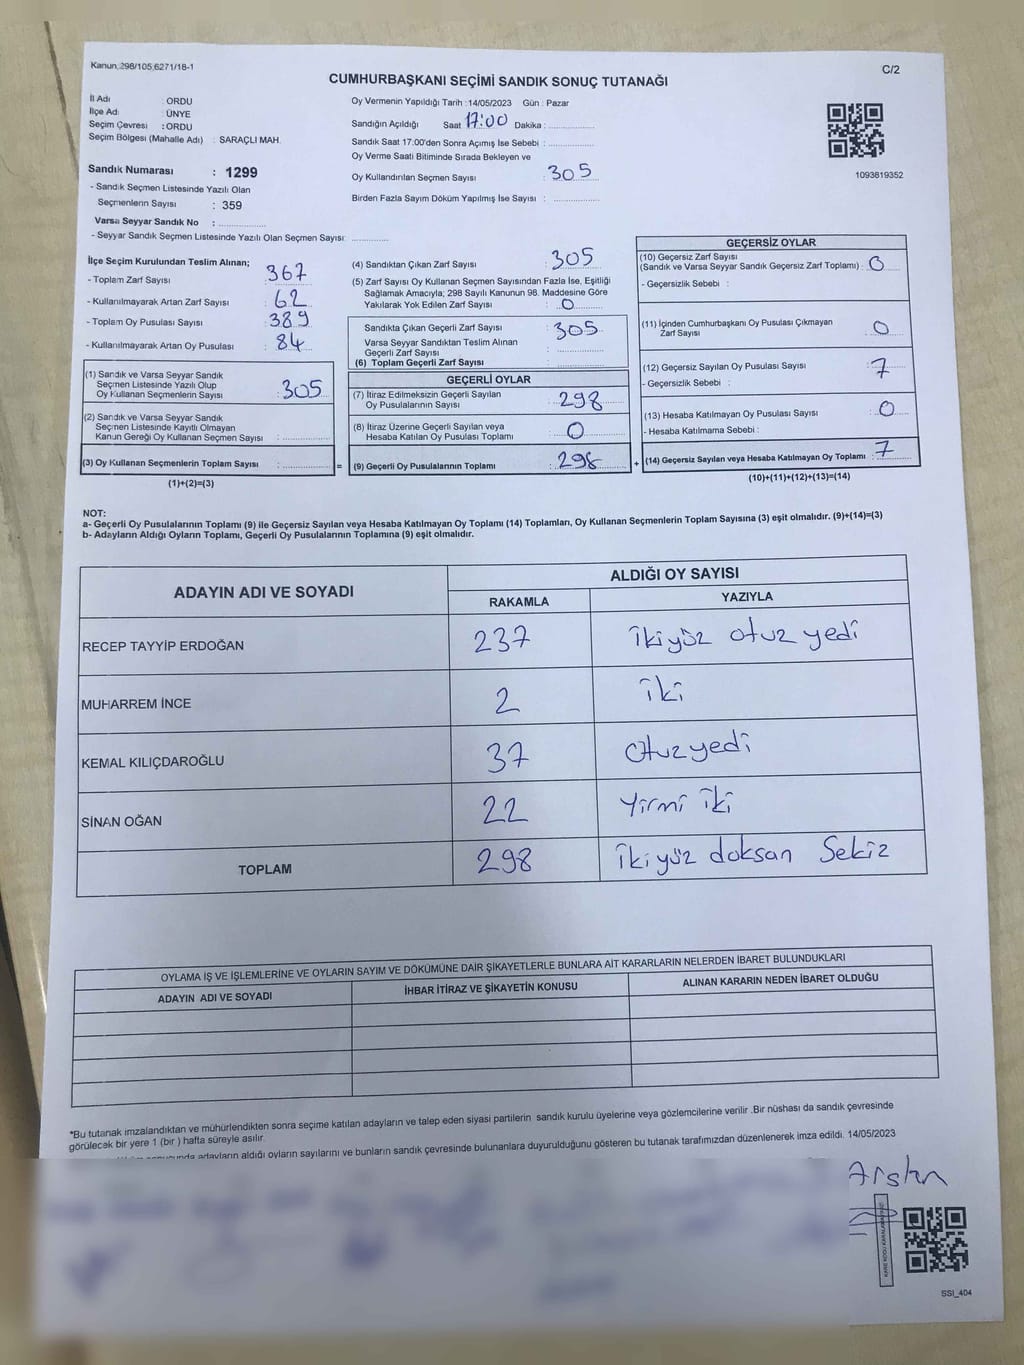 Kanun 298/105,6271/18-1
C/2
CUMHURBAŞKANI SEÇİMİ SANDIK SONUÇ TUTANAĞI
İl Adı : ORDU
İlçe Adı : ÜNYE
Seçim Çevresi : ORDU
Seçim Bölgesi (Mahalle Adı) : SARAÇLI MAH.
Sandık Numarası : 1299
- Sandık Seçmen Listesinde Yazılı Olan
Seçmenlerin Sayısı : 359
Varsa Seyyar Sandık No :
- Seyyar Sandık Seçmen Listesinde Yazılı Olan Seçmen Sayısı:
Oy Vermenin Yapıldığı Tarih : 14/05/2023 Gün : Pazar
Sandığın Açıldığı Saat 17:00 Dakika :
Sandık Saat 17.00'den Sonra Açımış İse Sebebi :
Oy Verme Saati Bitiminde Sırada Bekleyen ve
Oy Kullandırılan Seçmen Sayısı : 305
Birden Fazla Sayım Döküm Yapılmış İse Sayısı :
1093819352
İlçe Seçim Kurulundan Teslim Alınan;
- Toplam Zarf Sayısı : 367
- Kullanılmayarak Artan Zarf Sayısı : 62
- Toplam Oy Pusulası Sayısı : 389
- Kullanılmayarak Artan Oy Pusulası : 84
(1) Sandık ve Varsa Seyyar Sandık
Seçmen Listesinde Yazılı Olup
Oy Kullanan Seçmenlerin Sayısı : 305
(2) Sandık ve Varsa Seyyar Sandık
Seçmen Listesinde Kayıtlı Olmayan
Kanun Gereği Oy Kullanan Seçmen Sayısı :
(3) Oy Kullanan Seçmenlerin Toplam Sayısı : =
(1)+(2)=(3)
(4) Sandıktan Çıkan Zarf Sayısı : 305
(5) Zarf Sayısı Oy Kullanan Seçmen Sayısından Fazla İse, Eşitliği
Sağlamak Amacıyla; 298 Sayılı Kanunun 98. Maddesine Göre
Yakılarak Yok Edilen Zarf Sayısı : 0
Sandıkta Çıkan Geçerli Zarf Sayısı : 305
Varsa Seyyar Sandıktan Teslim Alınan
Geçerli Zarf Sayısı :
(6) Toplam Geçerli Zarf Sayısı :
GEÇERLİ OYLAR
(7) İtiraz Edilmeksizin Geçerli Sayılan
Oy Pusulalarının Sayısı : 298
(8) İtiraz Üzerine Geçerli Sayılan veya
Hesaba Katılan Oy Pusulası Toplamı : 0
(9) Geçerli Oy Pusulalarının Toplamı : 298 +
GEÇERSİZ OYLAR
(10) Geçersiz Zarf Sayısı
(Sandık ve Varsa Seyyar Sandık Geçersiz Zarf Toplamı) : 0
- Geçersizlik Sebebi :
(11) İçinden Cumhurbaşkanı Oy Pusulası Çıkmayan
Zarf Sayısı : 0
(12) Geçersiz Sayılan Oy Pusulası Sayısı : 7
- Geçersizlik Sebebi :
(13) Hesaba Katılmayan Oy Pusulası Sayısı : 0
- Hesaba Katılmama Sebebi :
(14) Geçersiz Sayılan veya Hesaba Katılmayan Oy Toplamı : 7
(10)+(11)+(12)+(13)=(14)
NOT:
a- Geçerli Oy Pusulalarının Toplamı (9) ile Geçersiz Sayılan veya Hesaba Katılmayan Oy Toplamı (14) Toplamları, Oy Kullanan Seçmenlerin Toplam Sayısına (3) eşit olmalıdır. (9)+(14)=(3)
b- Adayların Aldığı Oyların Toplamı, Geçerli Oy Pusulalarının Toplamına (9) eşit olmalıdır.
ADAYIN ADI VE SOYADI
ALDIĞI OY SAYISI
RAKAMLA YAZIYLA
RECEP TAYYİP ERDOĞAN 237 İkiyüz otuz yedi
MUHARREM İNCE 2 iki
KEMAL KILIÇDAROĞLU 37 Otuzyedi
SİNAN OĞAN 22 Yirmi iki
TOPLAM 298 ikiyüz doksan Sekiz
OYLAMA İŞ VE İŞLEMLERİNE VE OYLARIN SAYIM VE DÖKÜMÜNE DAİR ŞİKAYETLERLE BUNLARA AİT KARARLARIN NELERDEN İBARET BULUNDUKLARI
ADAYIN ADI VE SOYADI İHBAR İTİRAZ VE ŞİKAYETİN KONUSU ALINAN KARARIN NEDEN İBARET OLDUĞU
*Bu tutanak imzalandıktan ve mühürlendikten sonra seçime katılan adayların ve talep eden siyasi partilerin sandık kurulu üyelerine veya gözlemcilerine verilir .Bir nüshası da sandık çevresinde
görülecek bir yere 1 (bir ) hafta süreyle asılır.
adayların aldığı oyların sayılarını ve bunların sandık çevresinde bulunanlara duyurulduğunu gösteren bu tutanak tarafımızdan düzenlenerek imza edildi. 14/05/2023
Arslan
SSI_404